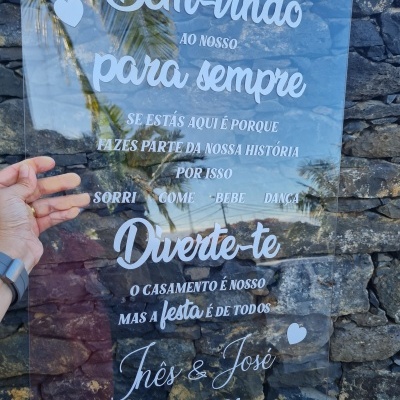 Bem-vindo
AO NOSSO
para sempre
SE ESTÁS AQUI É PORQUE
FAZES PARTE DA NOSSA HISTÓRIA
POR ISSO
SORRI COME BEBE DANÇA
Diverte-te
O CASAMENTO É NOSSO
MAS A festa É DE TODOS
Inês & José